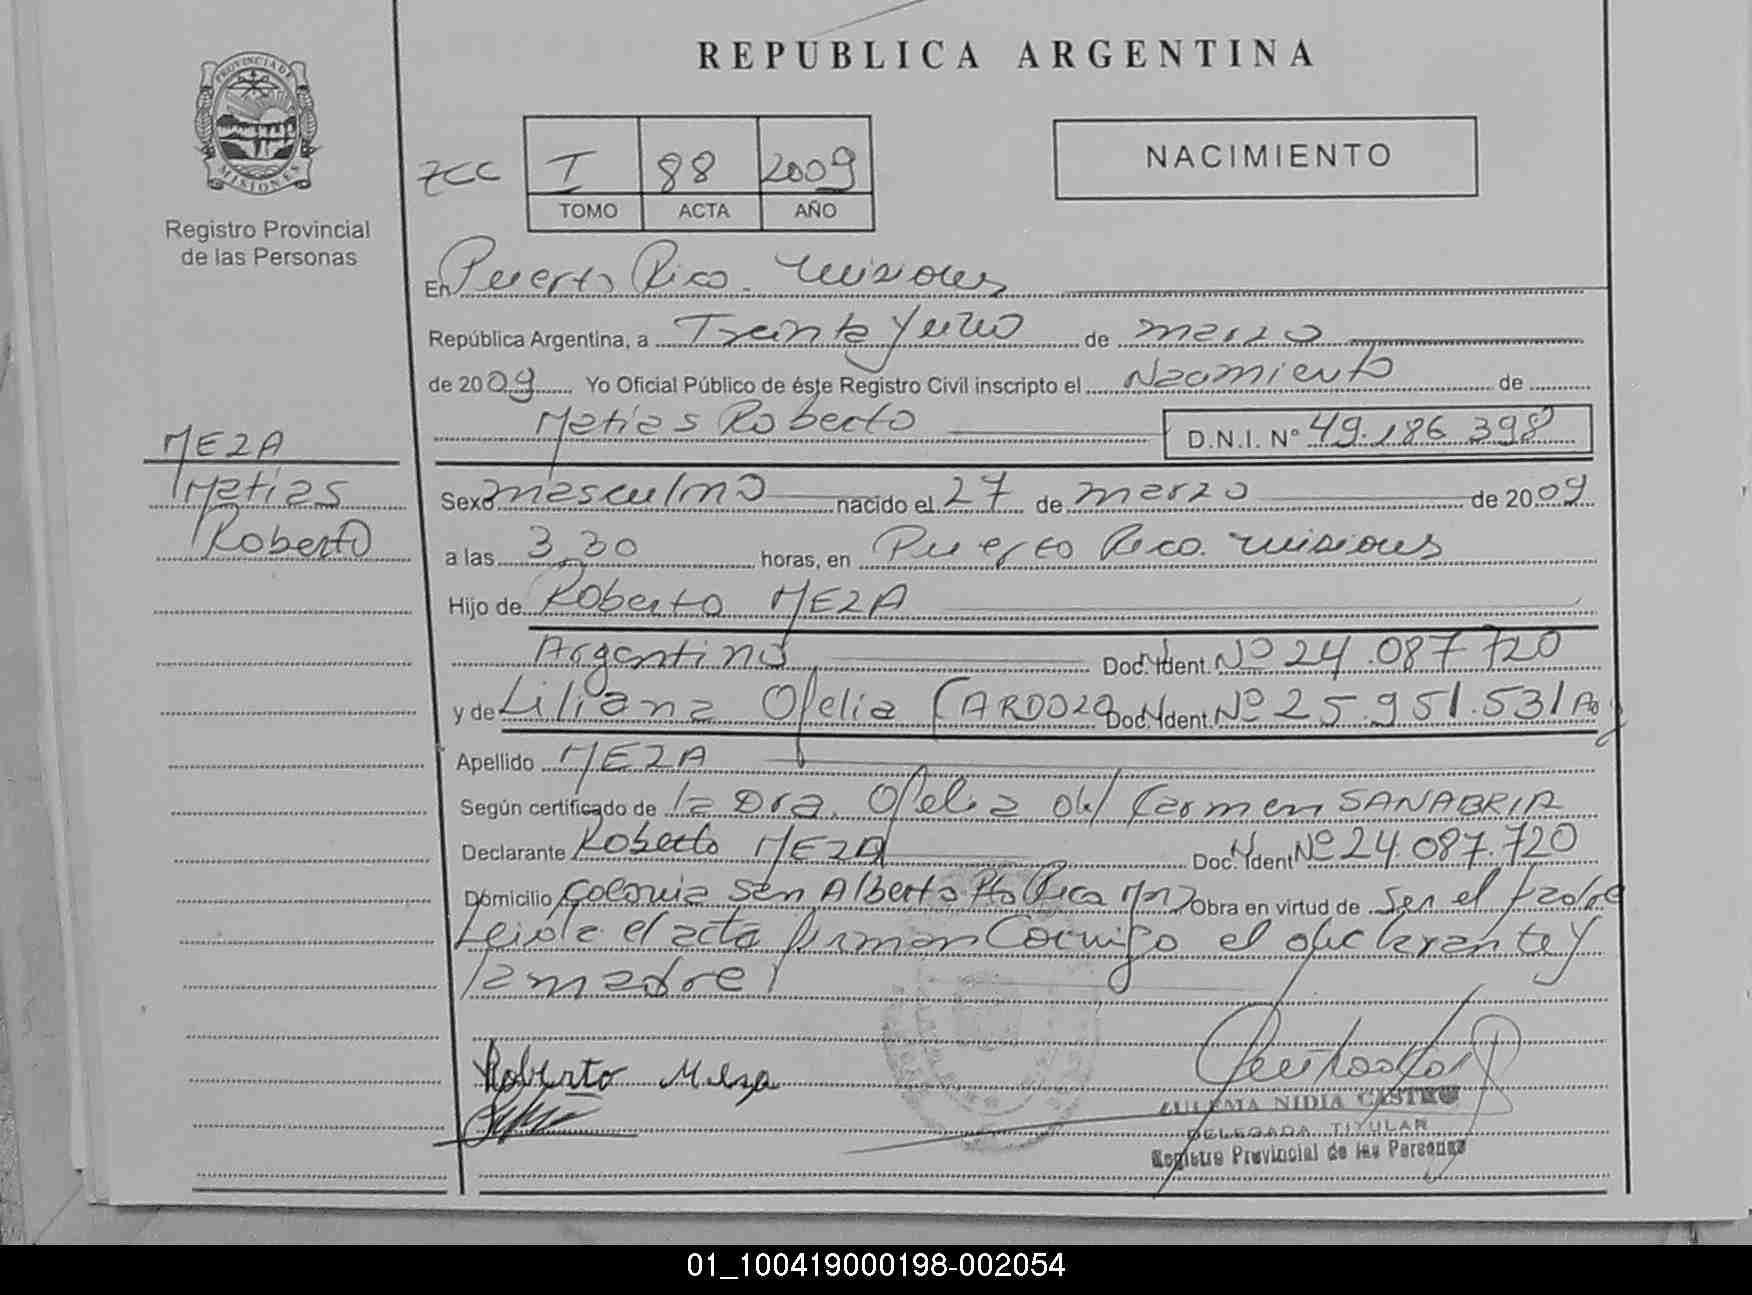 REPUBLICA ARGENTINA
PROVINCIA DE
MISIONES
Registro Provincial
de las Personas
7CC I 88 2009
TOMO ACTA AÑO
NACIMIENTO
En Puerto Rico. Misiones
República Argentina, a Treinta y uno de marzo
de 2009 Yo Oficial Público de éste Registro Civil inscripto el Nacimiento de
Matías Roberto D.N.I. N° 49.186.398
MEZA
Matías
Roberto
Sexo masculino nacido el 27 de marzo de 2009
a las 3,30 horas, en Puerto Rico. Misiones
Hijo de Roberto MEZA
Argentino Doc. Ident. Nº 24.087.720
y de Liliana Ofelia CARDOZO Doc. Ident. Nº 25.951.531 Arg
Apellido MEZA
Según certificado de la Dra. Ofelia del Carmen SANABRIA
Declarante Roberto MEZA Doc. Ident Nº 24.087.720
Domicilio Colonia San Alberto Pto Rico Mnes Obra en virtud de ser el padre
Leida el acta firman Conmigo el declarante y
la madre
Roberto Mesa
ZULEMA NIDIA CASTRO
DELEGADA TITULAR
Registro Provincial de las Personas
01_100419000198-002054